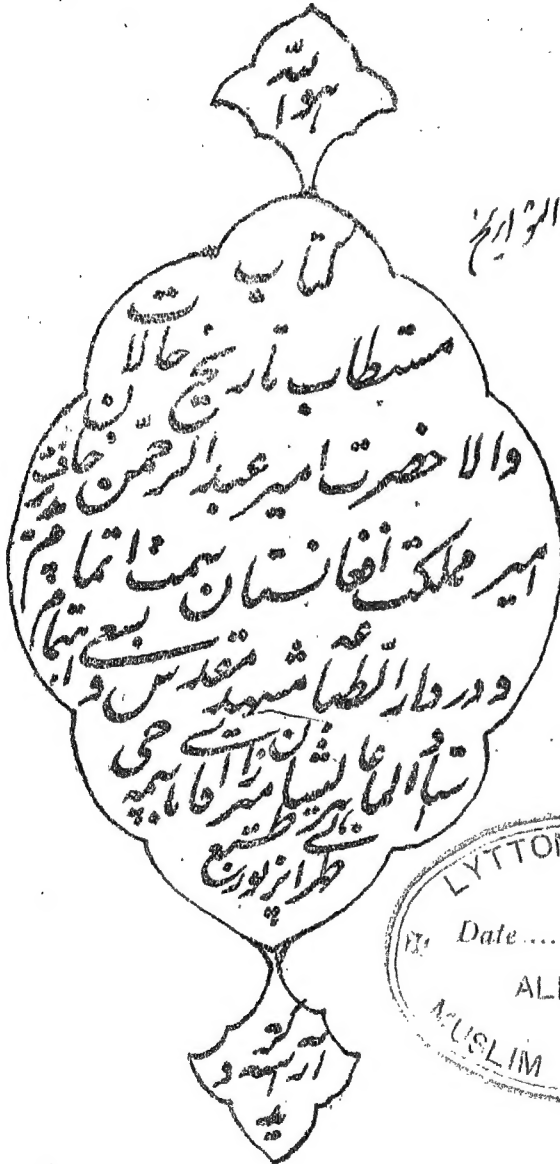 هو الله
التواریخ
کتاب
مستطاب تاریخ حالات
والا حضرت امیر عبدالرحمن خان
امیر مملکت افغانستان سمت اتمام
و در دار الطباعه مشهد مقدس بسعی و اهتمام
عالیشان میرزا آقا باسمه چی
طبع
LYTTON
Date....
MUSLIM